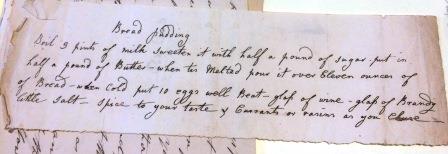 Bread pudding
Boil 3 pints of milk sweeten it with half a pound of sugar put in
half a pound of Butter - when tis Melted pour it over Eleven ounces of
of Bread - when Cold put 10 eggs well Beat - glass of wine - glass of Brandy
little salt - spice to your taste & Currants or raisins as you